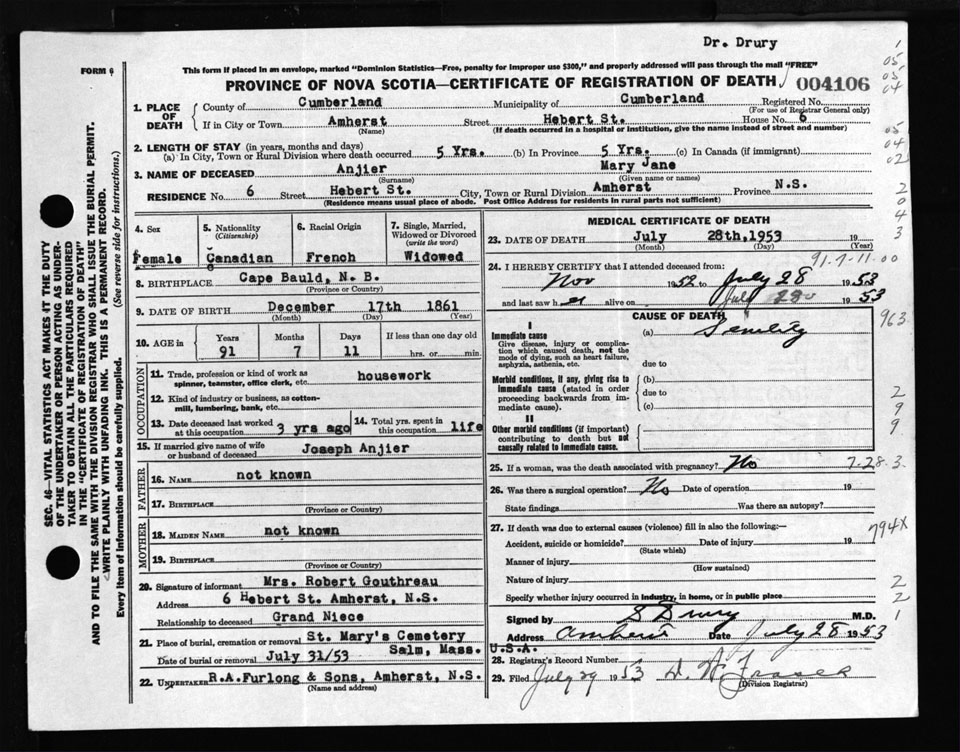 Dr. Drury
FORM 6
This form if placed in an envelope, marked "Dominion Statistics—Free, penalty for improper use $300," and properly addressed will pass through the mail "FREE"
PROVINCE OF NOVA SCOTIA—CERTIFICATE OF REGISTRATION OF DEATH 004106
SEC. 46—VITAL STATISTICS ACT MAKES IT THE DUTY
OF THE UNDERTAKER OR PERSON ACTING AS UNDER-
TAKER TO OBTAIN ALL THE PARTICULARS REQUIRED
IN THE "CERTIFICATE OF REGISTRATION OF DEATH"
AND TO FILE THE SAME WITH THE DIVISION REGISTRAR WHO SHALL ISSUE THE BURIAL PERMIT.
WRITE PLAINLY WITH UNFADING INK. THIS IS A PERMANENT RECORD.
Every item of information should be carefully supplied. (See reverse side for instructions.)
1. PLACE OF DEATH
County of Cumberland Municipality of Cumberland Registered No.
(For use of Registrar General only)
If in City or Town Amherst Street Hebert St. House No. 6
(Name) (If death occurred in a hospital or institution, give the name instead of street and number)
2. LENGTH OF STAY (in years, months and days)
(a) In City, Town or Rural Division where death occurred 5 Yrs. (b) In Province 5 Yrs. (c) In Canada (if immigrant)
3. NAME OF DECEASED Anjier Mary Jane
(Surname) (Given name or names)
RESIDENCE No. 6 Street Hebert St. City, Town or Rural Division Amherst Province N.S.
(Residence means usual place of abode. Post Office Address for residents in rural parts not sufficient)
4. Sex
Female
5. Nationality
(Citizenship)
Canadian
6. Racial Origin
French
7. Single, Married,
Widowed or Divorced
(write the word)
Widowed
8. BIRTHPLACE Cape Bauld, N. B.
(Province or Country)
9. DATE OF BIRTH December 17th 1861
(Month) (Day) (Year)
10. AGE in
Years Months Days If less than one day old
91 7 11 hrs. or min.
OCCUPATION
11. Trade, profession or kind of work as
spinner, teamster, office clerk, etc. housework
12. Kind of industry or business, as cotton-
mill, lumbering, bank, etc.
13. Date deceased last worked
at this occupation 3 yrs ago
14. Total yrs. spent in
this occupation life
15. If married give name of wife
or husband of deceased Joseph Anjier
FATHER
16. NAME not known
17. BIRTHPLACE
(Province or Country)
MOTHER
18. MAIDEN NAME not known
19. BIRTHPLACE
(Province or Country)
20. Signature of informant Mrs. Robert Gouthreau
Address 6 Hebert St. Amherst, N.S.
Relationship to deceased Grand Niece
21. Place of burial, cremation or removal St. Mary's Cemetery
Salm, Mass. U.S.A.
Date of burial or removal July 31/53
22. UNDERTAKER R.A.Furlong & Sons, Amherst, N.S.
(Name and address)
MEDICAL CERTIFICATE OF DEATH
23. DATE OF DEATH July 28th, 1953 19
(Month) (Day) (Year)
91-7-11-00
24. I HEREBY CERTIFY that I attended deceased from:
Nov 1952 to July 28 1953
and last saw her alive on July 28 1953
CAUSE OF DEATH
I
Immediate cause
Give disease, injury or complica-
tion which caused death, not the
mode of dying, such as heart failure,
asphyxia, asthenia, etc.
(a) Senility
due to
Morbid conditions, if any, giving rise to
immediate cause (stated in order
proceeding backwards from im-
mediate cause).
(b)
due to
(c)
II
Other morbid conditions (if important)
contributing to death but not
causally related to immediate cause.
25. If a woman, was the death associated with pregnancy? No 7-28-3
26. Was there a surgical operation? No Date of operation 19
State findings Was there an autopsy?
27. If death was due to external causes (violence) fill in also the following:—
Accident, suicide or homicide? Date of injury 19
(State which)
Manner of injury
(How sustained)
Nature of injury
Specify whether injury occurred in industry, in home, or in public place
Signed by S Drury M.D.
Address Amherst Date July 28 1953
28. Registrar's Record Number
29. Filed July 29 1953
(Division Registrar)
1
05
05
04
05
04
02
2
0
4
3
963
2
9
9
794X
2
2
1